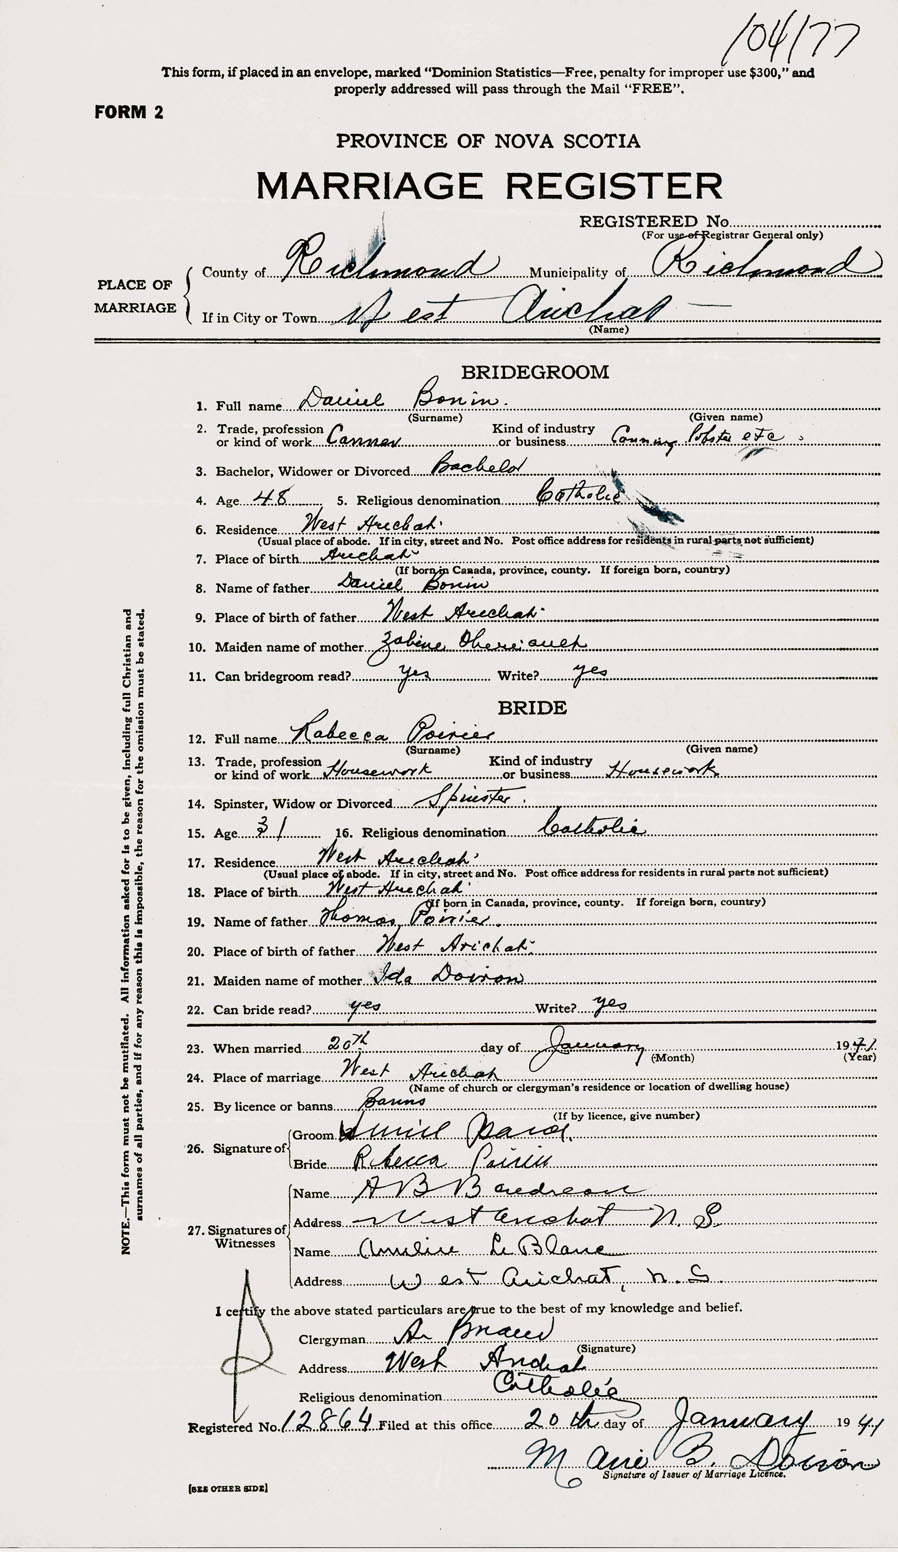 104/77
This form, if placed in an envelope, marked "Dominion Statistics—Free, penalty for improper use $300," and
properly addressed will pass through the Mail "FREE".
FORM 2
PROVINCE OF NOVA SCOTIA
MARRIAGE REGISTER
REGISTERED No.
(For use of Registrar General only)
PLACE OF MARRIAGE
County of Richmond Municipality of Richmond
If in City or Town West Arichat
(Name)
BRIDEGROOM
1. Full name Daniel Bonin.
(Surname) (Given name)
2. Trade, profession or kind of work Canner Kind of industry or business Canning Lobster etc.
3. Bachelor, Widower or Divorced Bachelor
4. Age 48 5. Religious denomination Catholic
6. Residence West Arichat
(Usual place of abode. If in city, street and No. Post office address for residents in rural parts not sufficient)
7. Place of birth Arichat
(If born in Canada, province, county. If foreign born, country)
8. Name of father Daniel Bonin
9. Place of birth of father West Arichat
10. Maiden name of mother
11. Can bridegroom read? yes Write? yes
BRIDE
12. Full name Rabecca Poirier
(Surname) (Given name)
13. Trade, profession or kind of work Housework Kind of industry or business Housework
14. Spinster, Widow or Divorced Spinster.
15. Age 31 16. Religious denomination Catholic
17. Residence West Arichat
(Usual place of abode. If in city, street and No. Post office address for residents in rural parts not sufficient)
18. Place of birth West Arichat
(If born in Canada, province, county. If foreign born, country)
19. Name of father Thomas Poirier.
20. Place of birth of father West Arichat
21. Maiden name of mother Ida Doiron
22. Can bride read? yes Write? yes
23. When married 20th day of January 1941
(Month) (Year)
24. Place of marriage West Arichat
(Name of church or clergyman's residence or location of dwelling house)
25. By licence or banns Banns
(If by licence, give number)
26. Signature of
Groom
Bride Rebecca Poirier
27. Signatures of Witnesses
Name A B Boudreau
Address West Arichat N. S.
Name LeBlanc
Address West Arichat, N. S.
I certify the above stated particulars are true to the best of my knowledge and belief.
Clergyman
(Signature)
Address West Arichat
Religious denomination Catholic
Registered No. 12864 Filed at this office 20th day of January 1941
Marie B. Doiron
Signature of Issuer of Marriage Licence.
[SEE OTHER SIDE]
NOTE.—This form must not be mutilated. All information asked for is to be given, including full Christian and
surnames of all parties, and if for any reason this is impossible, the reason for the omission must be stated.